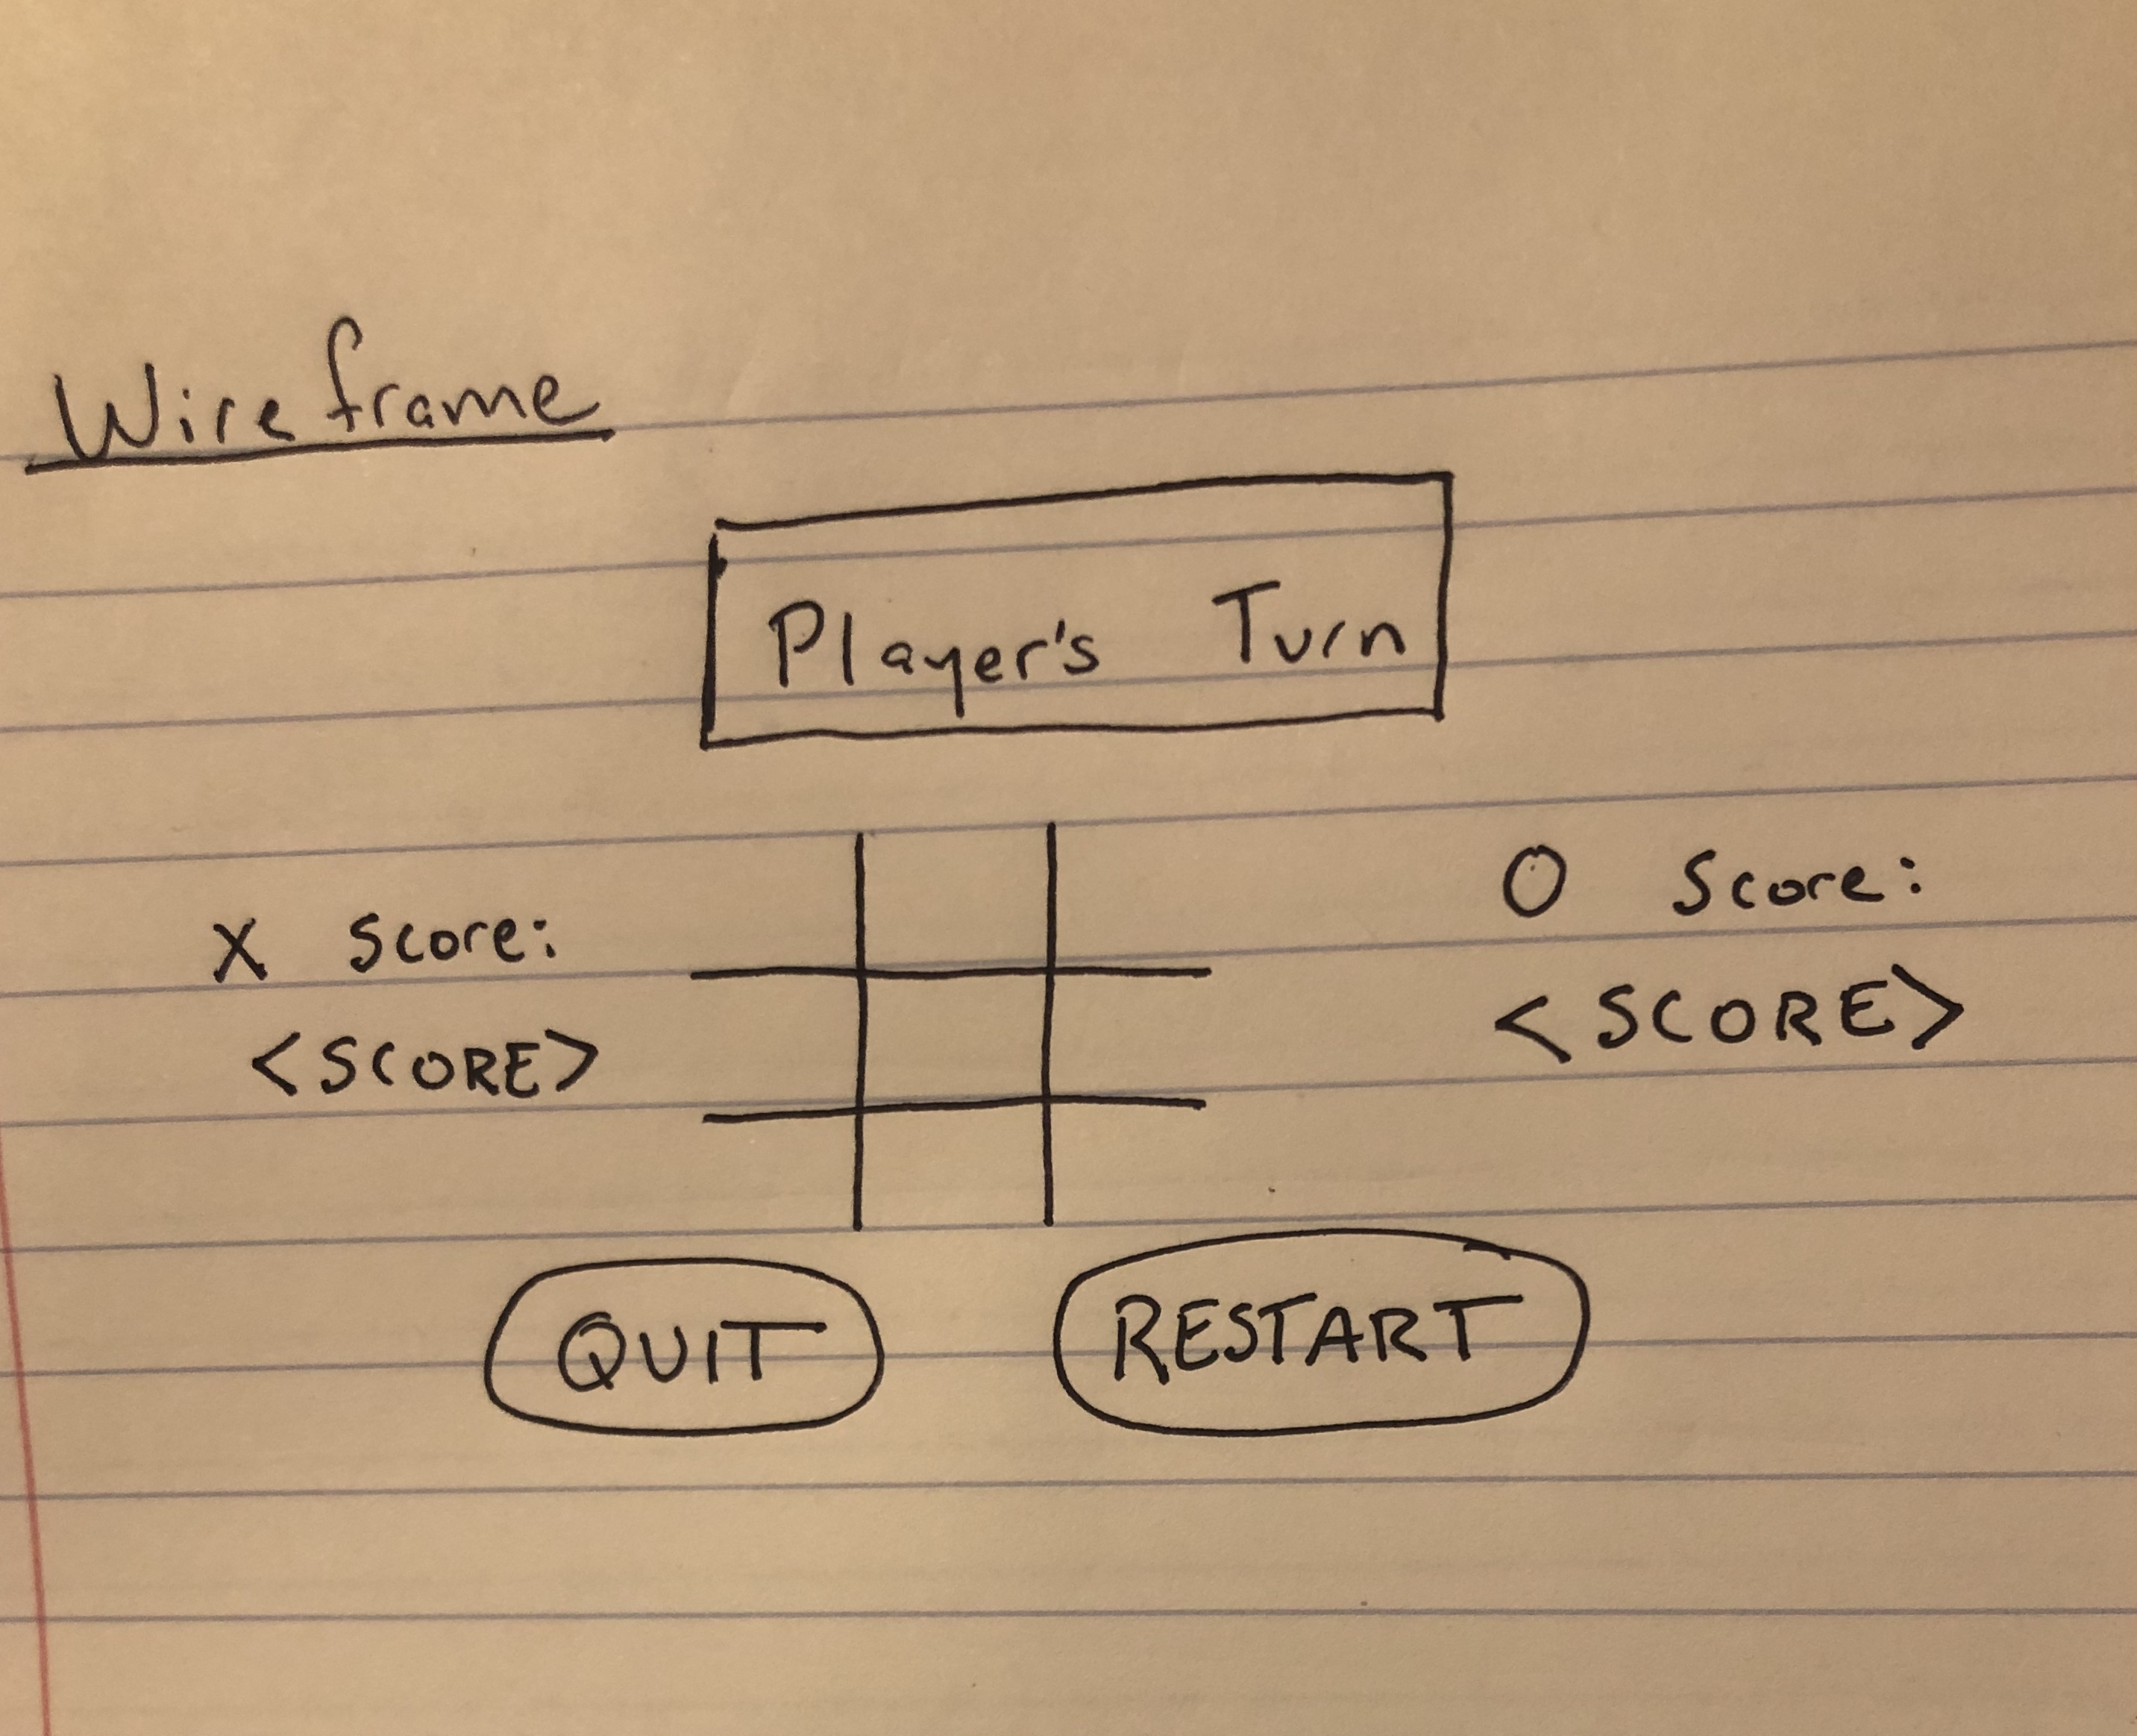 Wireframe
Player's Turn
X Score:
<SCORE>
O Score:
<SCORE>
QUIT
RESTART